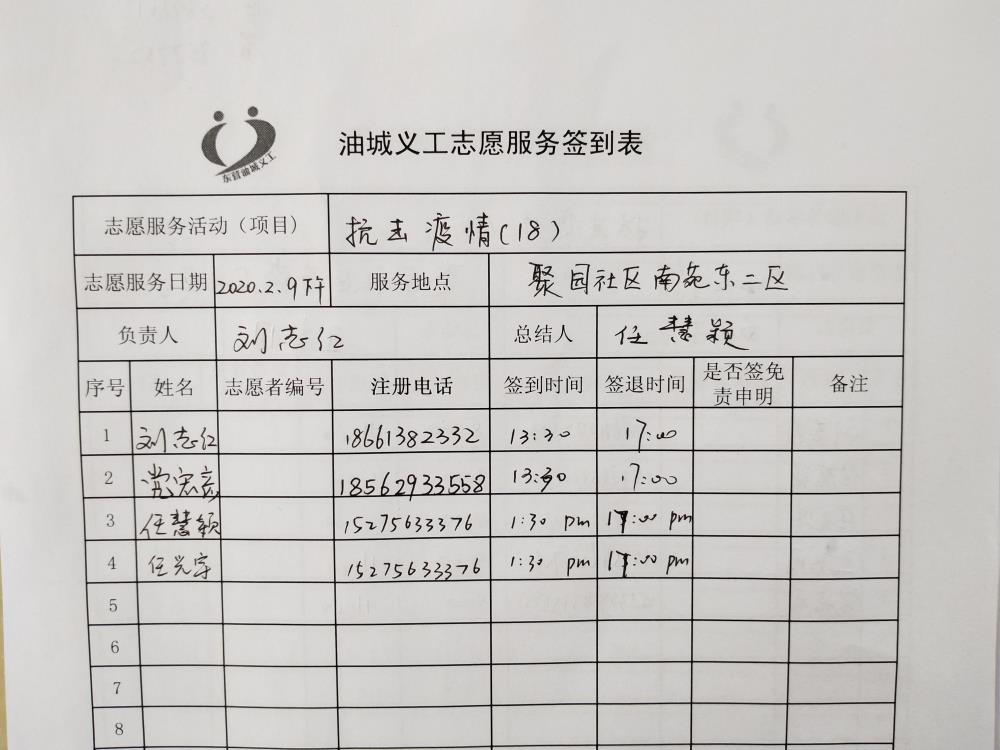 东营油城义工
油城义工志愿服务签到表
志愿服务活动（项目） 抗击疫情(18)
志愿服务日期 2020.2.9下午 服务地点 聚园社区南苑东二区
负责人 刘志红 总结人 任慧颖
序号 姓名 志愿者编号 注册电话 签到时间 签退时间 是否签免责申明 备注
1 刘志红 18661382332 13:30 17:00
2 18562933558 13:30 17:00
3 任慧颖 15275633376 1:30 pm 17:00 pm
4 15275633376 1:30 pm 17:00 pm
5
6
7
8